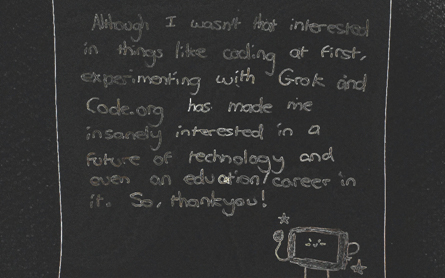 Although I wasn't that interested
in things like coding at first,
experimenting with Grok and
Code.org has made me
insanely interested in a
future of technology and
even an education/career in
it. So, thankyou!